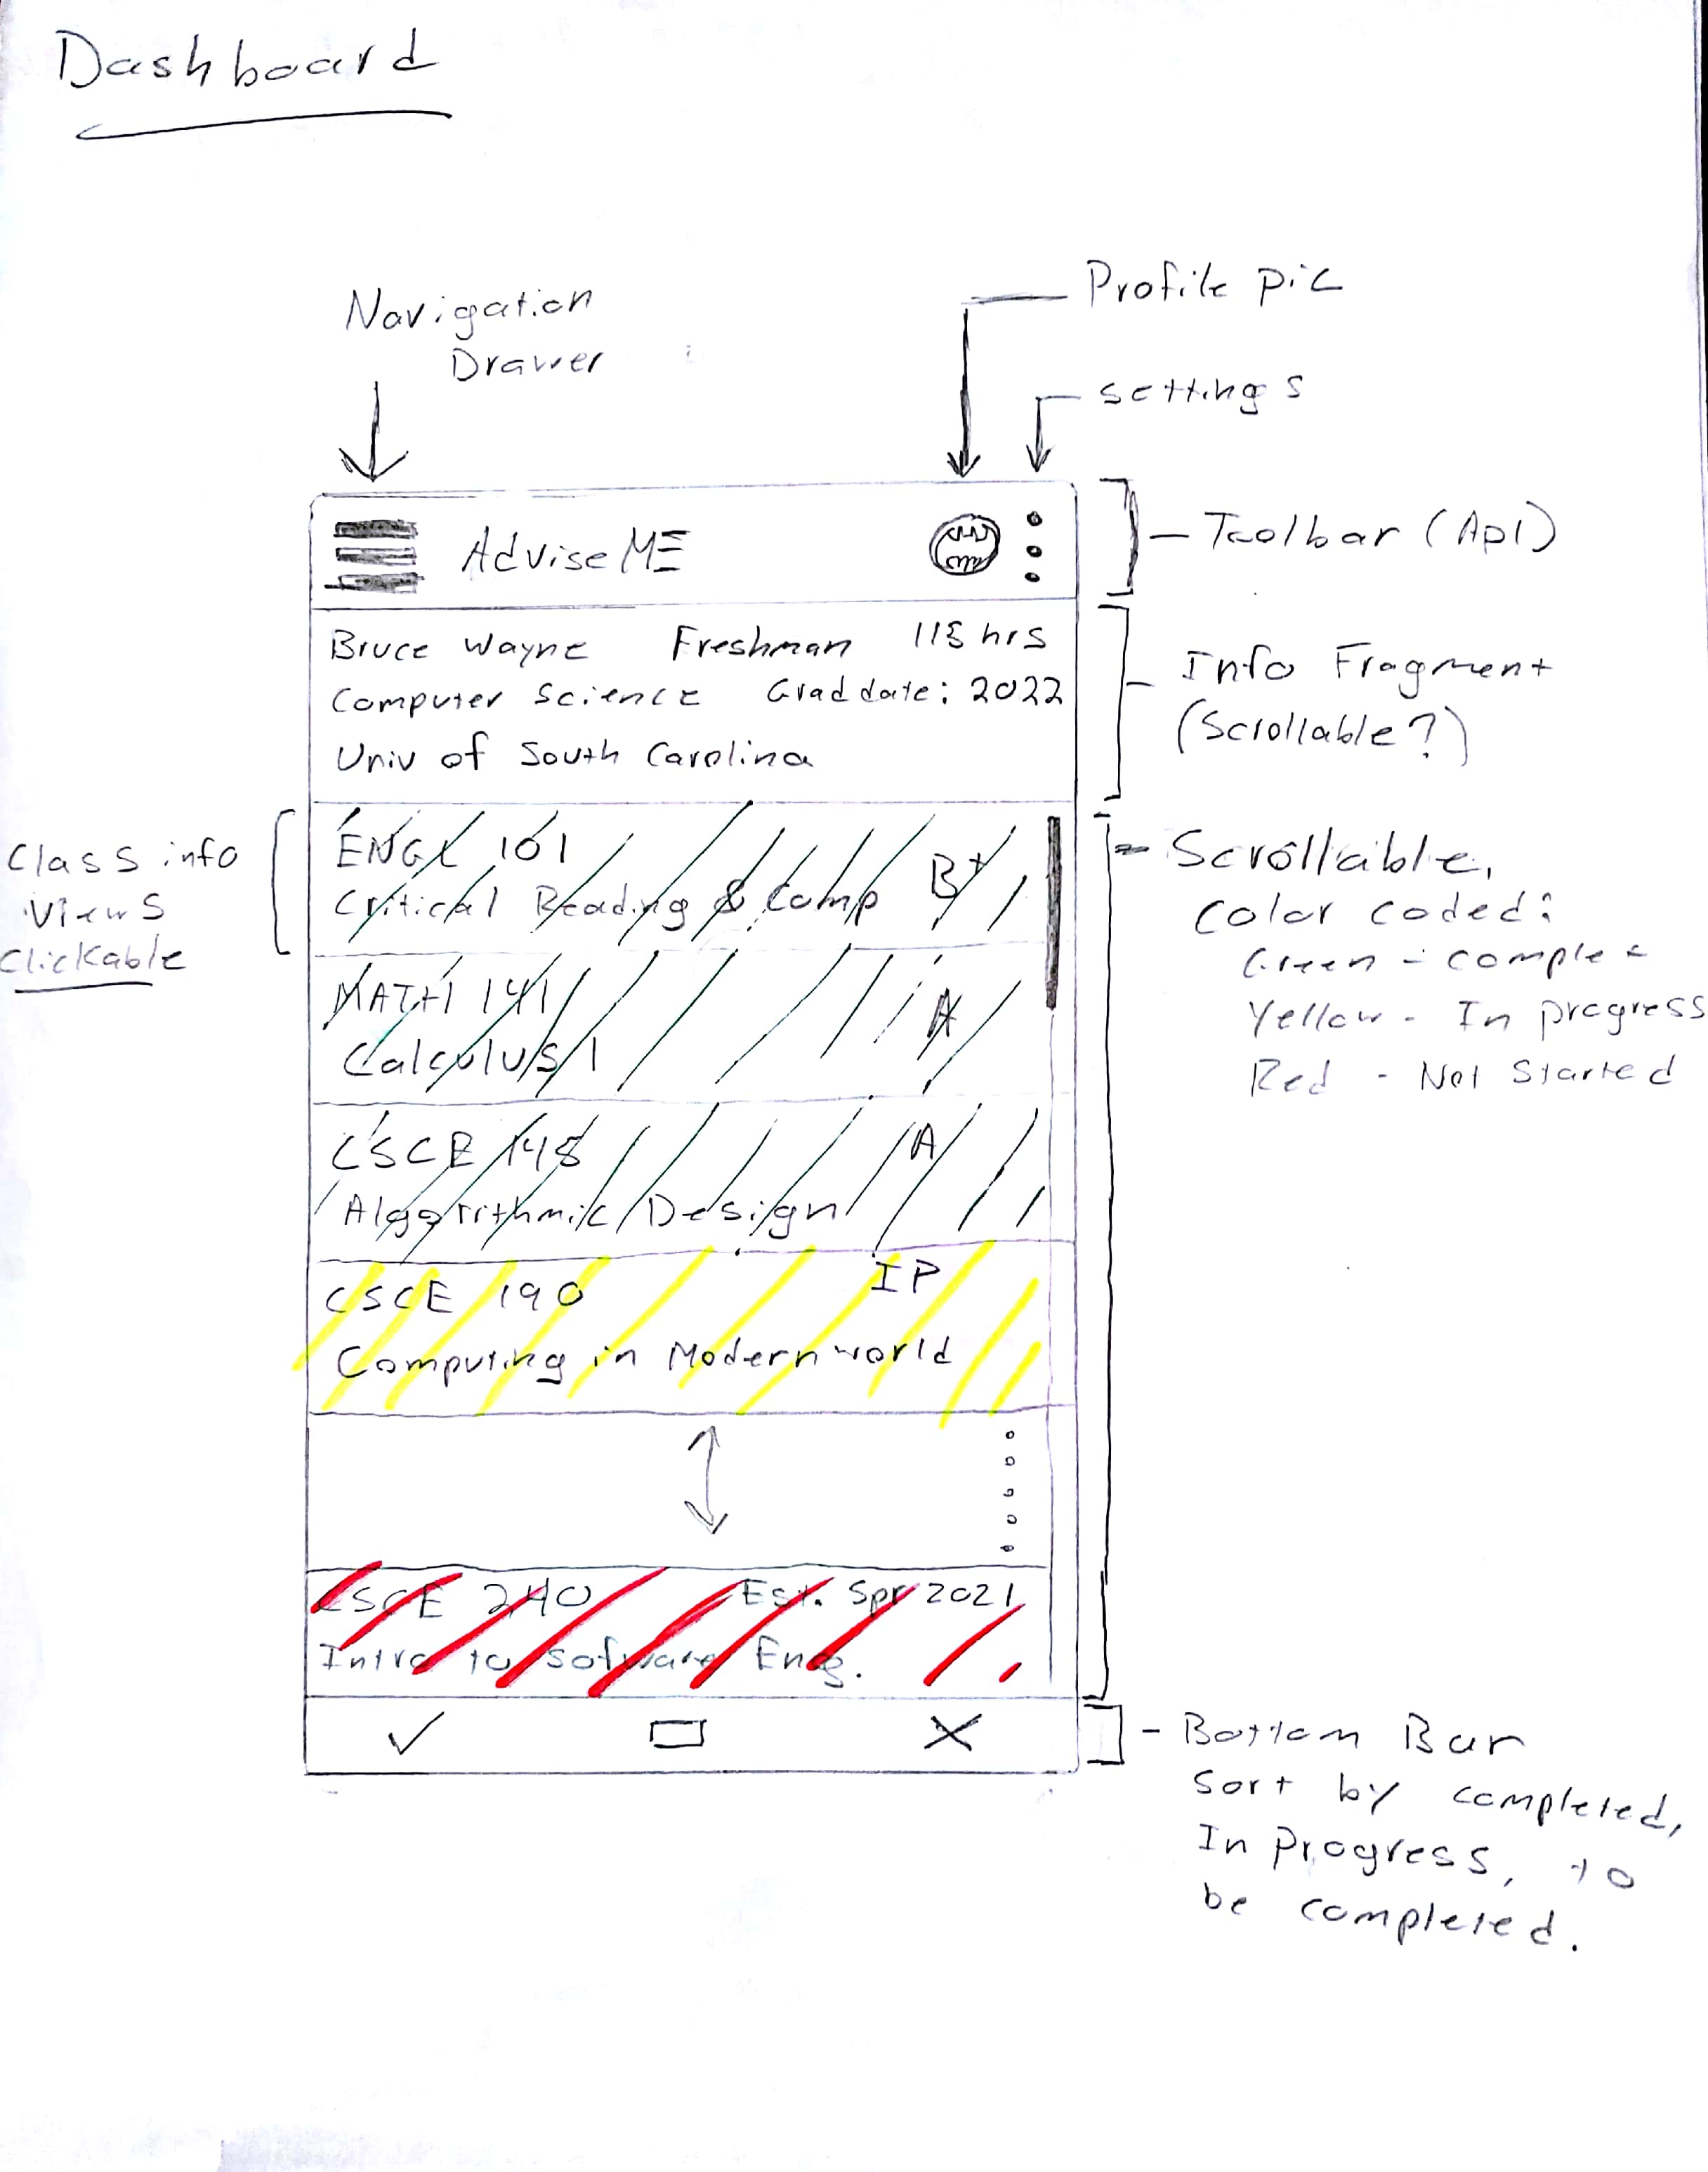 Dashboard
Navigation
Drawer
Profile pic
settings
AdviseME
Toolbar (API)
Bruce Wayne Freshman 115 hrs
Computer Science Grad date: 2022
Univ of South Carolina
Info Fragment
(Scrollable?)
Class info
views
clickable
ENGL 101
Critical Reading & Comp B+
MATH 141 A
Calculus 1
CSCE 145 A
Algorithmic Design
CSCE 190 IP
Computing in Modern world
CSCE 240 Est. Spr 2021
Intro to Sofware Eng.
= Scrollable,
Color coded:
Green - complet
Yellow - In progress
Red - Not Started
- Bottom Bar
Sort by completed,
In Progress, to
be completed.